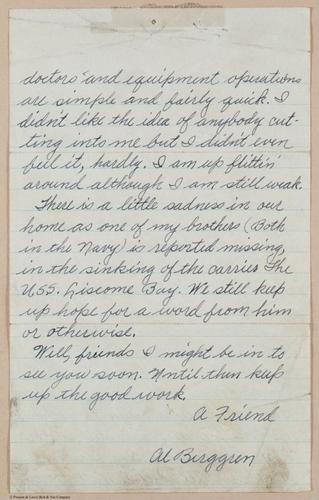 doctors and equipment operations
are simple and fairly quick. I
didn't like the idea of anybody cut-
ting into me but I didn't even
feel it, hardly. I am up flittin'
around although I am still weak.
There is a little sadness in our
home as one of my brothers (Both
in the Navy) is reported missing,
in the sinking of the carrier The
U.S.S. Liscome Bay. We still keep
up hope for a word from him
or otherwise.
Well, friends I might be in to
see you soon. Until then keep
up the good work.
A Friend
Al Berggren